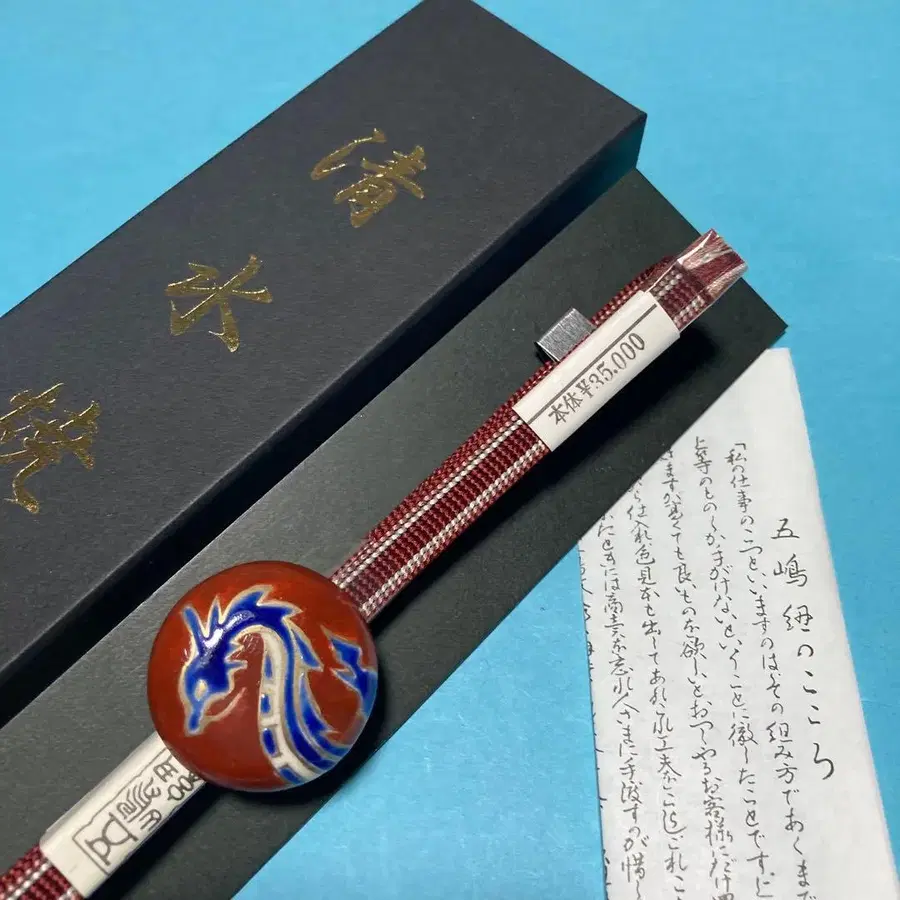 清水焼
本体¥35.000
五嶋紐のこころ
「私の仕事のこつといいますのはその組み方であくまで
上等のものしか手がけないということに徹したことです
ますが高くても良いものを欲しいとおっしゃるお客様にだけ
ら仕入れ色見本も出してあれこれ工夫をこらしこれこ
たときには商売を忘れ人さまに手渡すのが惜し